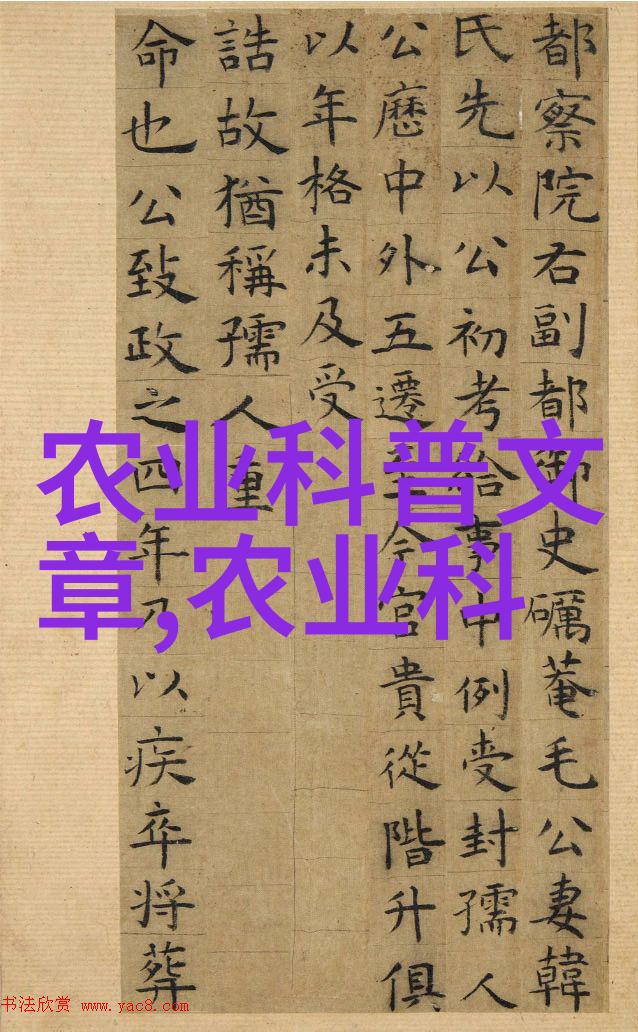 都察院右副都御史礪菴毛公妻韓
氏先以公初考給事中例受封孺人
公歷中外五遷至今官貴從階升俱
以年格未及受
誥故猶稱孺人重
命也公致政之四年乃以疾卒将葬
农业科普文
章,农业科
书法欣赏 www.yac8.com